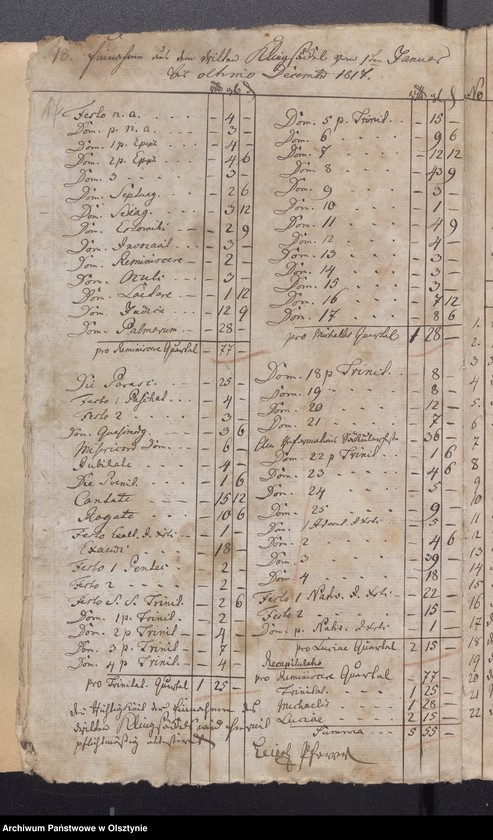 18. Einnahme aus dem dritten Klingsäckel vom 1ten Januar
bis ultimo December 1817.
Festo n. a. — 4 —
Dom. p. n. a. — 3 —
Dom. 1 p. Epiph. — 4 —
Dom. 2 p. Epiph. — 4 6
Dom. 3 — 3 —
Dom. Septuag. — 2 6
Dom. Sexag. — 3 12
Dom. Estomihi — 2 9
Dom. Invocavit — 3 —
Dom. Reminiscere — 2 —
Dom. Oculi — 3 —
Dom. Laetare — 1 12
Dom. Judica — 12 9
Dom. Palmarum — 28 —
pro Reminiscere Quartal — 77 —
Die Parasc. — 25 —
Festo 1 Paschat. — 4 —
Festo 2 — 3 —
Dom. Quasimodog. — 3 6
Misericord. Dom. — 6 —
Jubilate — 4 —
Die Poenit. — 1 6
Cantate — 15 12
Rogate — 10 6
Festo Exalt. d. Xsti — 1 —
Exaudi — 18 —
Festo 1 Pentec. — 2 —
Festo 2 — 2 —
Festo S. S. Trinit. — 2 6
Dom. 1 p. Trinit. — 2 —
Dom. 2 p Trinit — 4 —
Dom. 3 p Trinit. — 7 —
Dom. 4 p Trinit. — 4 —
pro Trinitat. Quartal 1 25 —
die Richtigkeit der Einnahme des
dritten Klingsäckels wird hiermit
pflichtmäßig attestiert
Dom. 5 p. Trinit. — 15 —
Dom. 6 — 9 6
Dom. 7 — 12 12
Dom. 8 — 43 9
Dom. 9 — 3 —
Dom. 10 — 1 —
Dom. 11 — 4 9
Dom. 12 — 4 —
Dom. 13 — 3 —
Dom. 14 — 3 —
Dom. 15 — 3 —
Dom. 16 — 7 12
Dom. 17 — 8 6
pro Michaelis Quartal 1 28 —
Dom. 18 p Trinit. — 8 —
Dom. 19 — 8 —
Dom. 20 — 12 —
Dom. 21 — 7 —
Am Reformations Säcularfeste — 36 —
Dom. 22 p Trinit. — 1 6
Dom. 23 — 4 6
Dom. 24 — 5 —
Dom. 25 — 9 —
Dom. 1 Advent. d. Xsti — 5 —
Dom. 2 — 4 6
Dom. 3 — 39 —
Dom. 4 — 18 —
Festo 1 Nativ. d. Xsti — 22 —
Festo 2 — 15 —
Dom. p. Nativ. d. Xsti — 1 —
pro Luciae Quartal 2 15 —
Recapitulatio
pro Reminiscere Quartal — 77 —
Trinitat. 1 25 —
Michaelis 1 28 —
Luciae 2 15 —
Summa 5 55 —
Pfarrer
No
1.
2.
3
4.
5.
6.
7
8
9
10
11
12
13
14
15
16
17
18
19
20
21
22
Archiwum Państwowe w Olsztynie